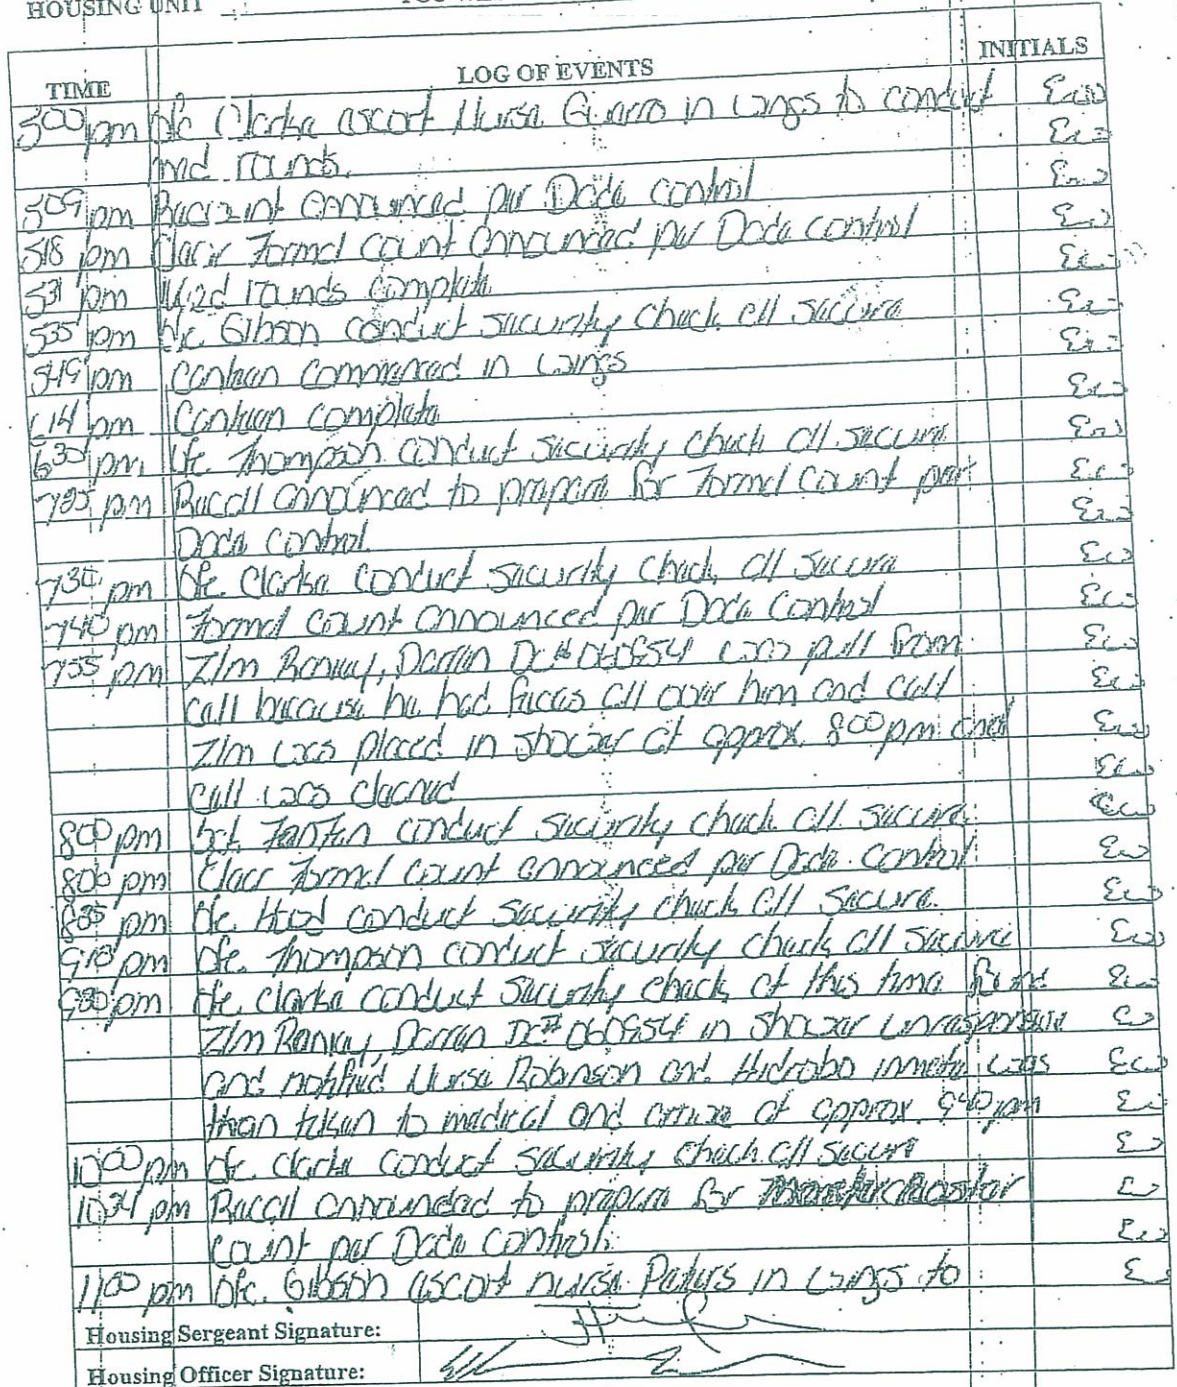 HOUSING UNIT
TIME LOG OF EVENTS INITIALS
5:00 pm Ofc Clarke escort Nurse in wings to conduct
med rounds.
5:09 pm Recount announced per Dade control
5:18 pm Clear Formal count announced per Dade control
5:31 pm Med rounds complete
5:35 pm Ofc Gibson conduct security check all secure
5:49 pm Canteen commenced in wings
6:14 pm Canteen complete
6:30 pm Ofc. Thompson conduct security check all secure
7:25 pm Recall announced to prepare for Formal count per
Dade control.
7:30 pm Ofc. Clarke conduct security check, all secure
7:40 pm Formal count announced per Dade control
7:55 pm I/m Rainey, Darren DC# 060954 was pull from
cell because he had feces all over him and cell
I/m was placed in shower at approx. 8:00 pm and
cell was cleaned
8:00 pm Sgt. FanFan conduct security check all secure
8:06 pm Clear Formal count announced per Dade control
8:35 pm Ofc. conduct security check all secure.
9:18 pm Ofc. Thompson conduct security check, all secure
9:30 pm Ofc. Clarke conduct security check, at this time found
I/m Rainey, Darren DC# 060954 in shower unresponsive
and notified Nurse Robinson and Hidrobo inmate was
then taken to medical and arrive at approx. 9:40 pm
10:00 pm Ofc. Clarke conduct security check all secure
10:24 pm Recall announced to prepare for Master
count per Dade control.
11:00 pm Ofc. Gibson escort nurse Peters in wings to
Housing Sergeant Signature:
Housing Officer Signature: